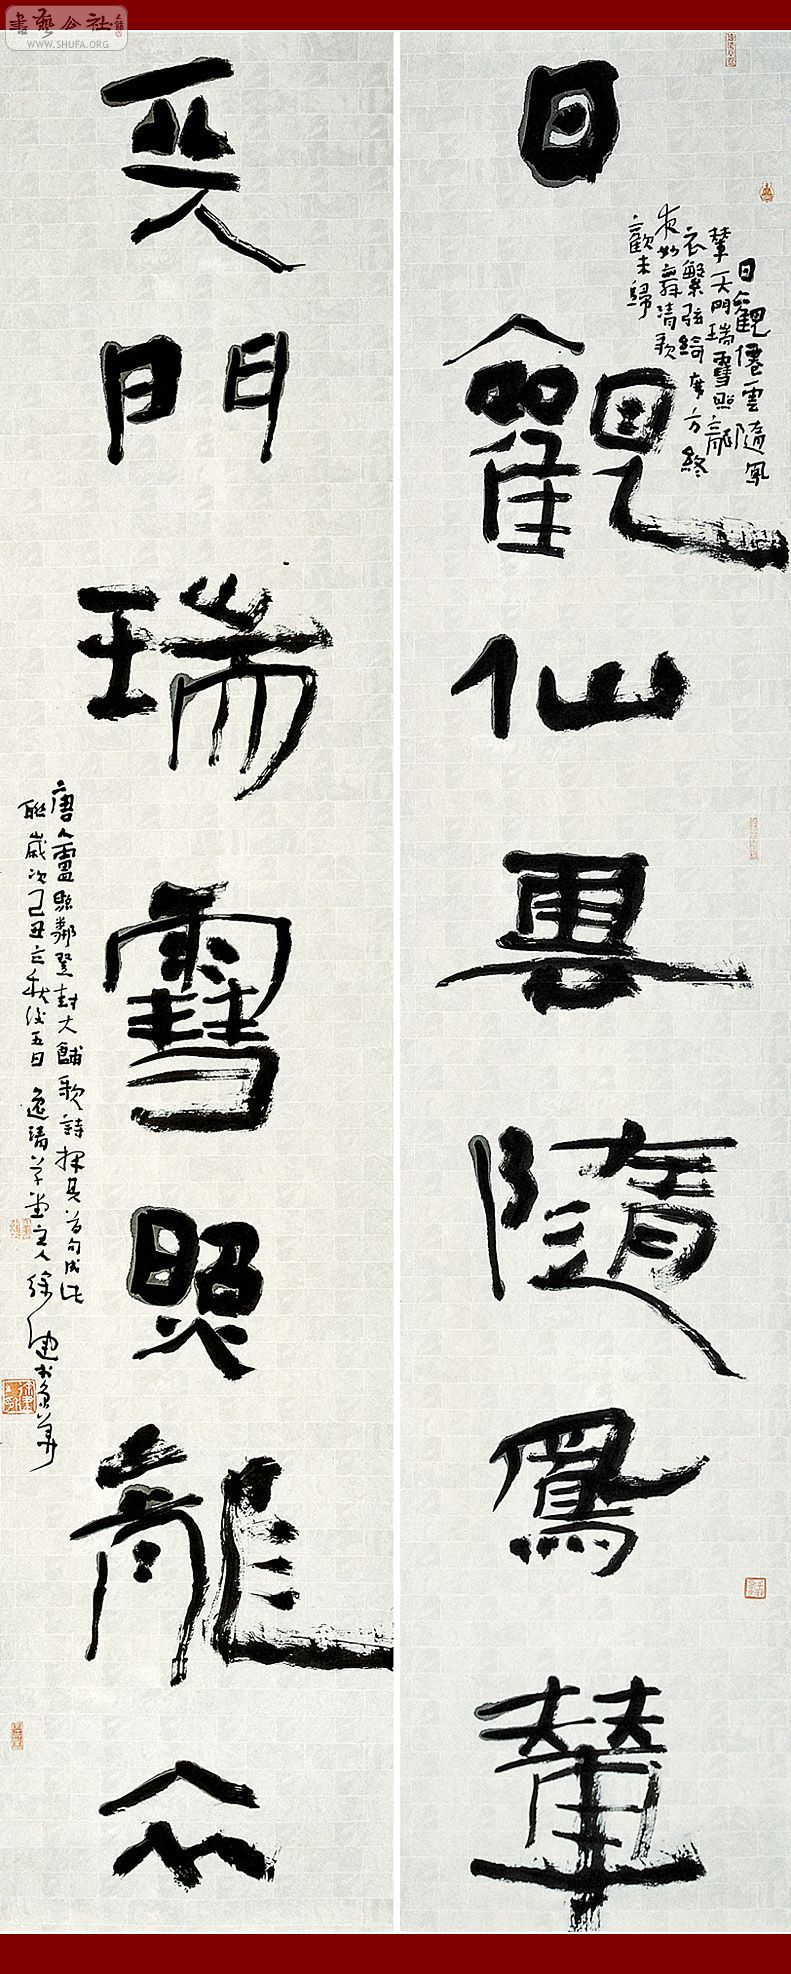 日觀仙雲隨鳳輦
日觀僊雲隨鳳
輦天門瑞雪照龍
衣繁弦綺席方終
夜妙舞清歌
歡未歸
天門瑞雪照龍衣
唐人盧照鄰登封大酺歌詩擇其首句成此
聯歲次己丑立秋後五日逸清草堂主人徐
書藝公社
WWW.SHUFA.ORG